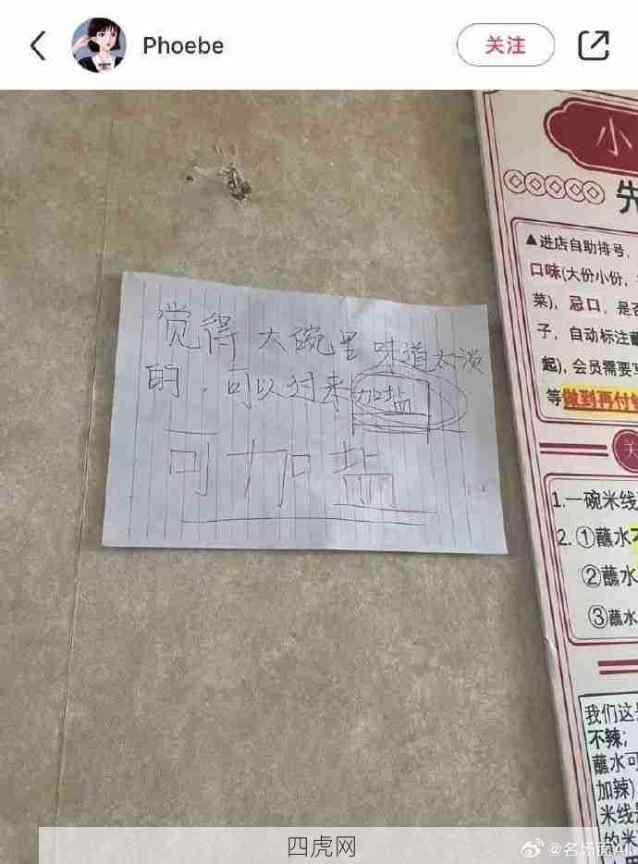 Phoebe
关注
小
先
▲进店自助排号,
口味(大份小份,
菜), 忌口, 是否
子, 自动标注
起), 会员需要
等做到再付
关
1.一碗米线
2.①蘸水不
②蘸水
③蘸水
我们这
不辣;
蘸水可
加辣)
米线
的米
觉得 大碗里 味道太淡
的, 可以过来加盐
可加盐
四虎网
@名场面